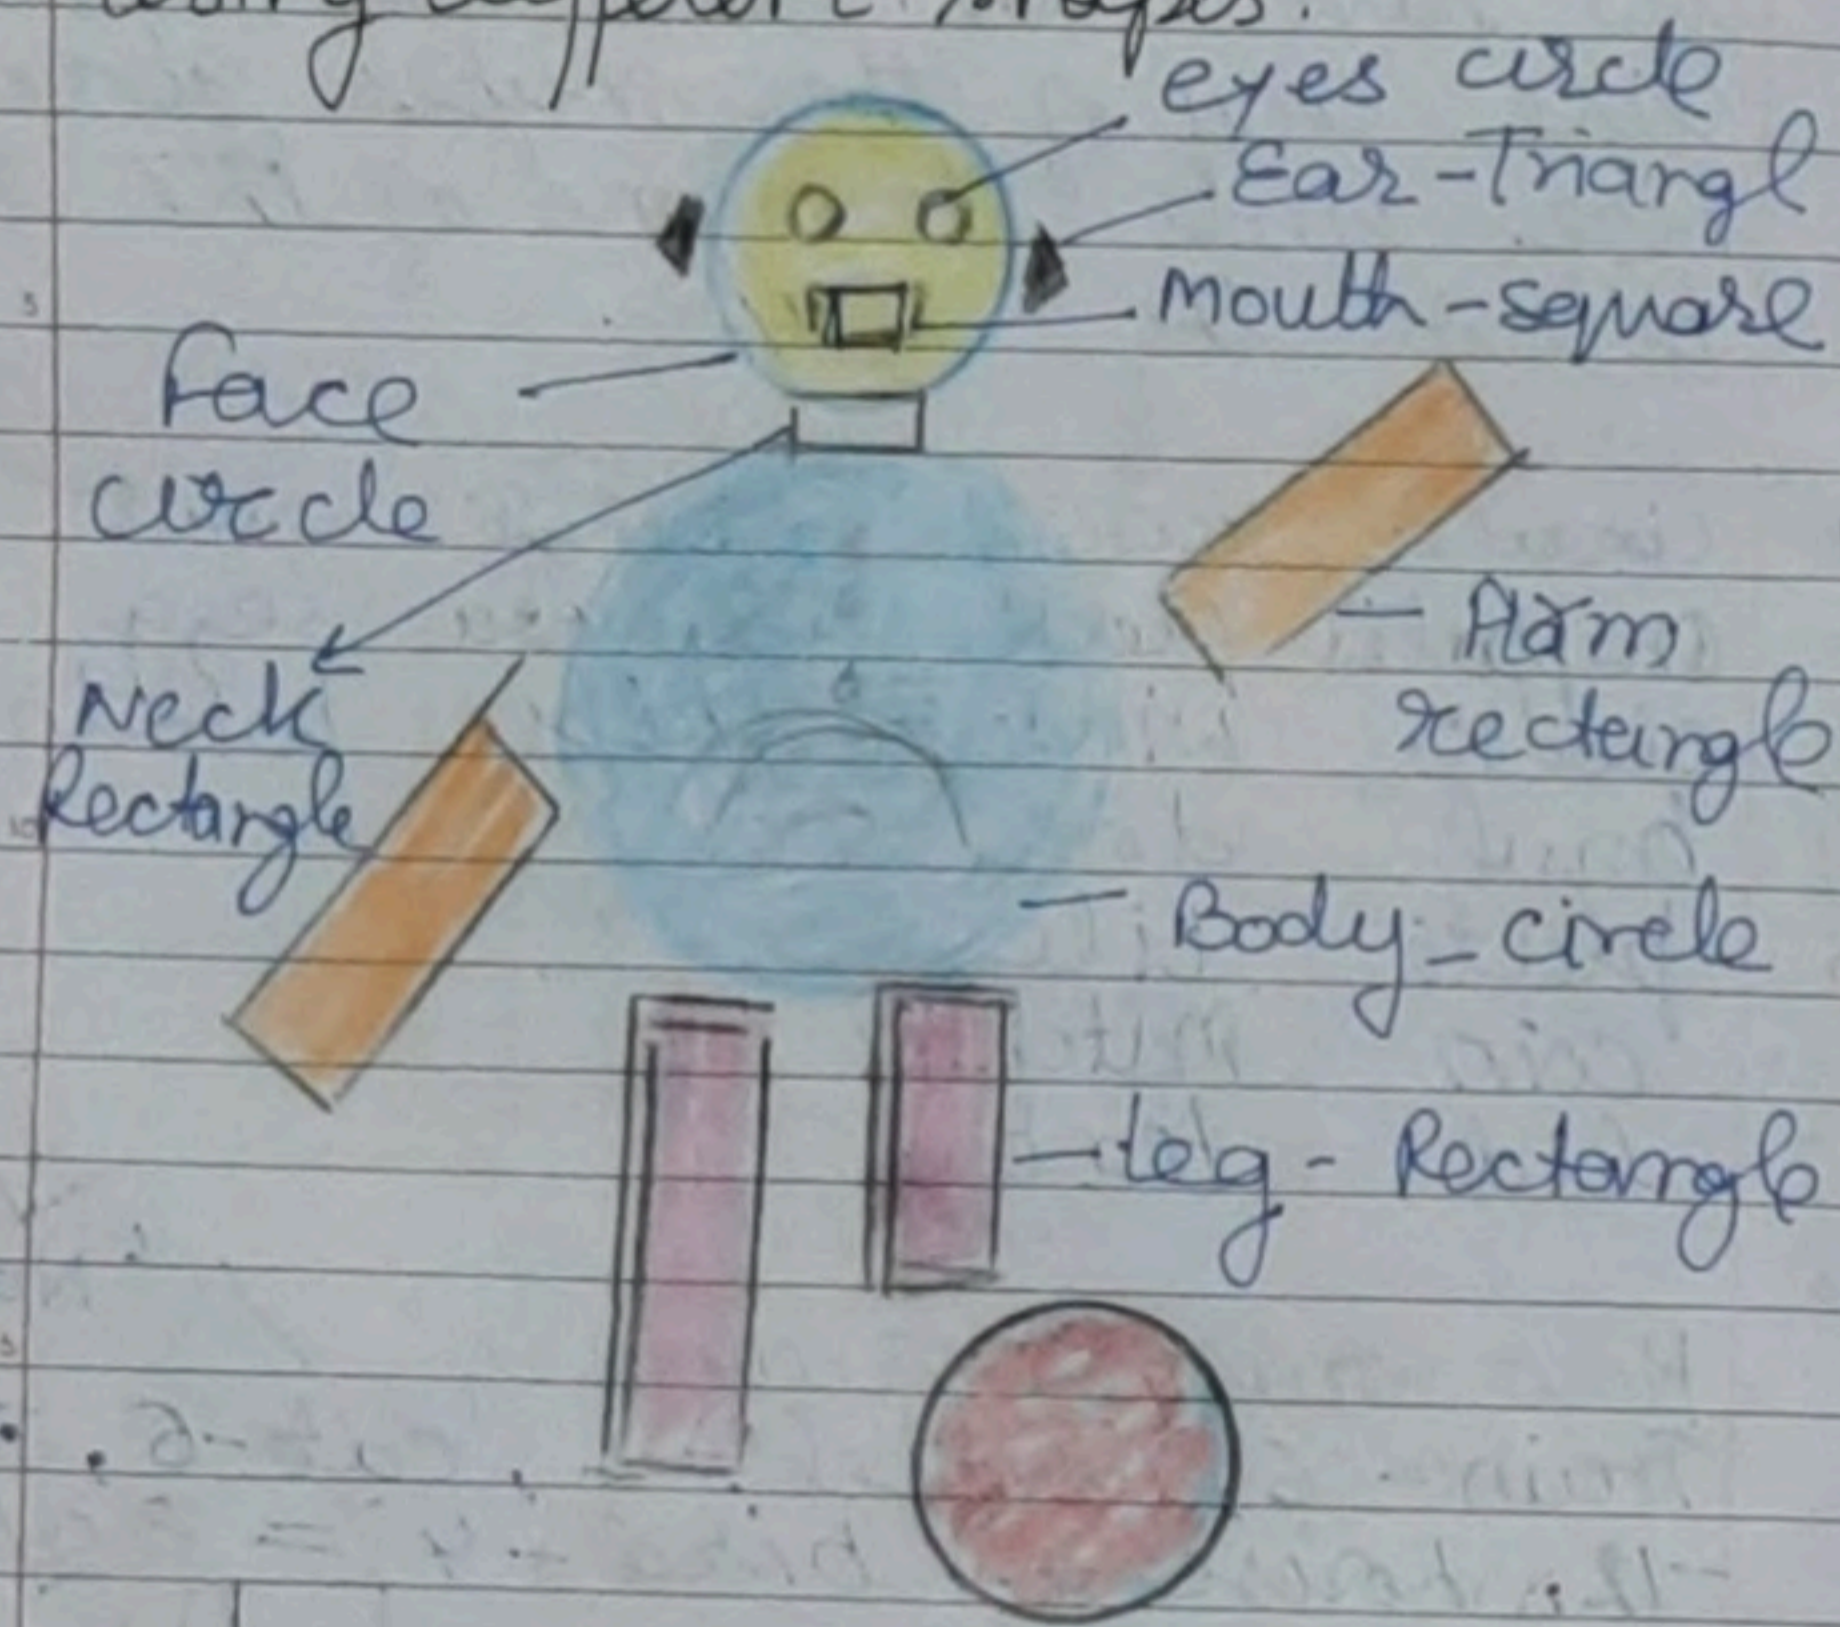 using different shapes.
eyes circle
Ear-Triangl
Mouth-square
Face
circle
Arm
rectangle
Neck
Rectangle
Body-circle
leg-Rectangle